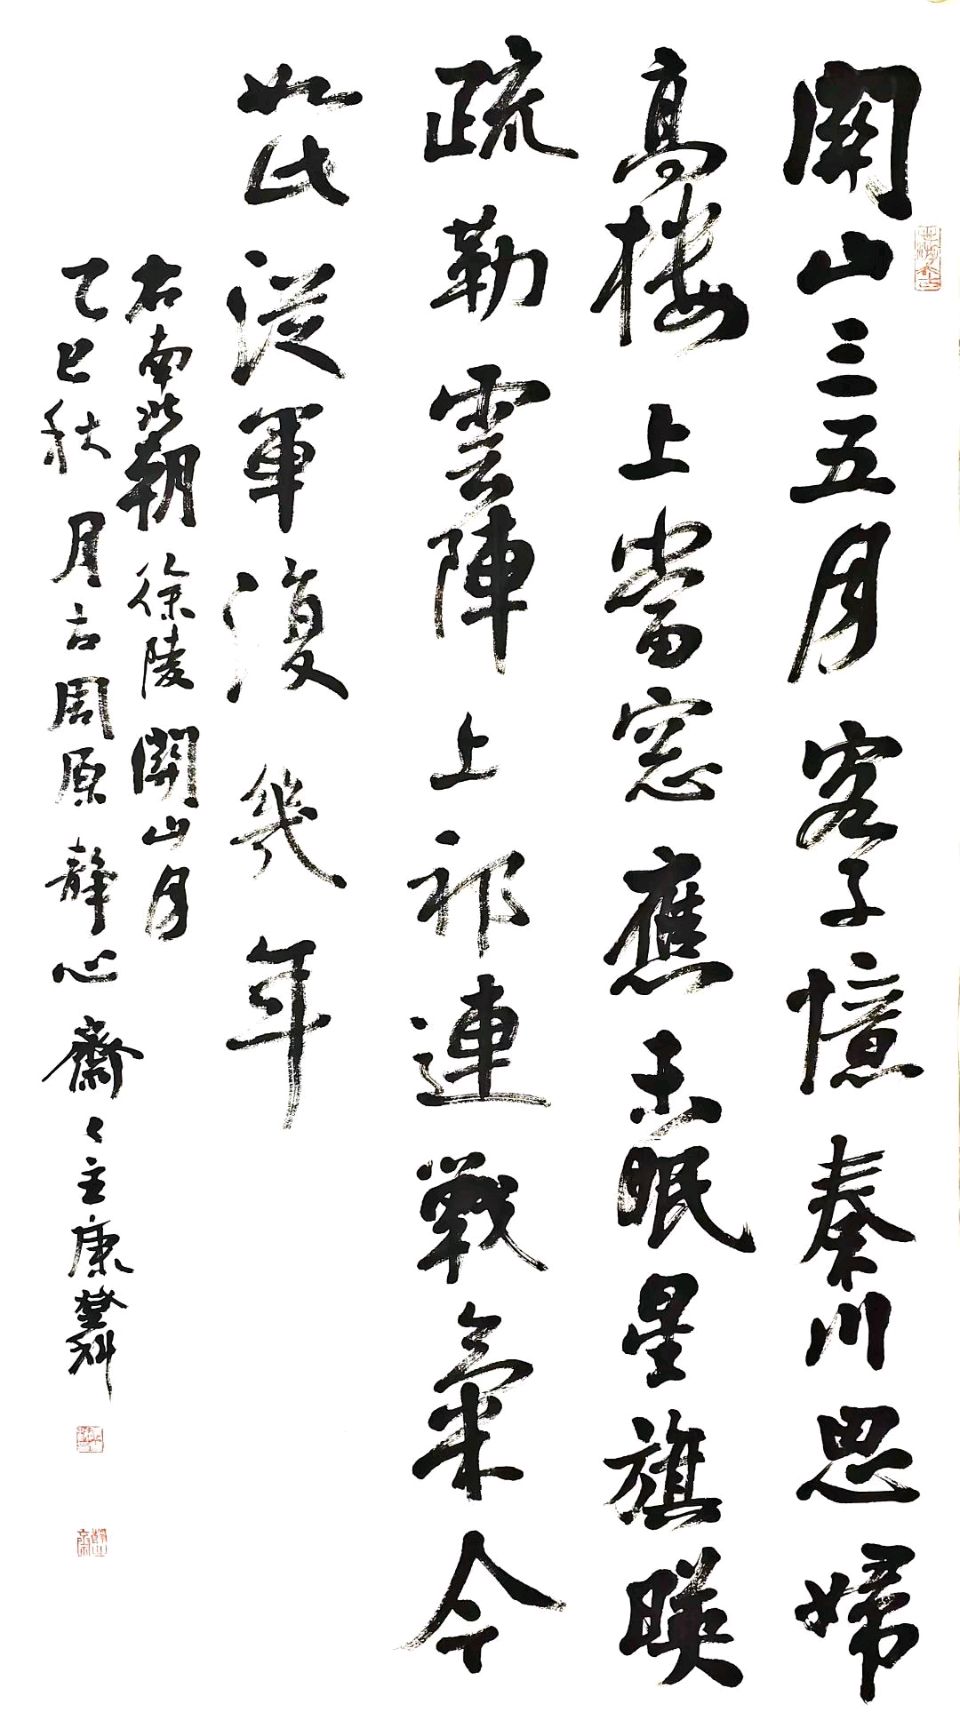 關山三五月客子憶秦川思婦
高樓上當窓應未眠星旗暎
疏勒雲陣上祁連戰氣今
如此從軍復幾年
右南北朝徐陵關山月
乙巳秋月古周原靜心齋主康